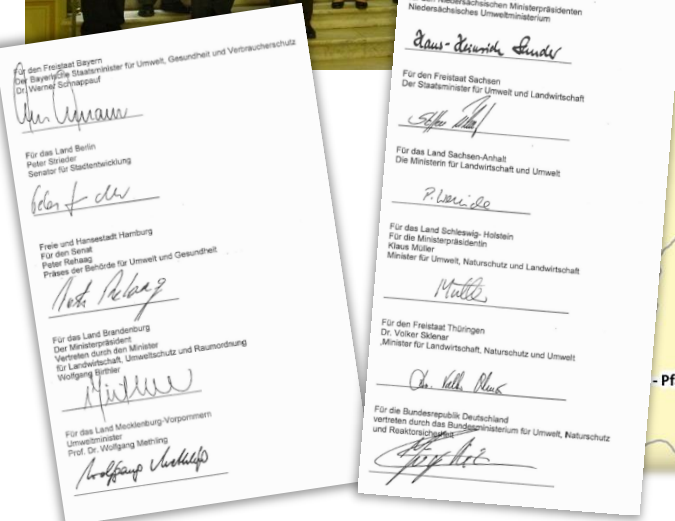 Für den Freistaat Bayern
Der Bayerische Staatsminister für Umwelt, Gesundheit und Verbraucherschutz
Dr. Werner Schnappauf
Für das Land Berlin
Peter Strieder
Senator für Stadtentwicklung
Freie und Hansestadt Hamburg
Für den Senat
Peter Rehaag
Präses der Behörde für Umwelt und Gesundheit
Für das Land Brandenburg
Der Ministerpräsident
Vertreten durch den Minister
für Landwirtschaft, Umweltschutz und Raumordnung
Wolfgang Birthler
Für das Land Mecklenburg-Vorpommern
Umweltminister
Prof. Dr. Wolfgang Methling
Wolfgang Methling
Niedersächsischen Ministerpräsidenten
Niedersächsisches Umweltministerium
Hans-Heinrich Sander
Für den Freistaat Sachsen
Der Staatsminister für Umwelt und Landwirtschaft
Für das Land Sachsen-Anhalt
Die Ministerin für Landwirtschaft und Umwelt
Für das Land Schleswig- Holstein
Für die Ministerpräsidentin
Klaus Müller
Minister für Umwelt, Naturschutz und Landwirtschaft
Müller
Für den Freistaat Thüringen
Dr. Volker Sklenar
Minister für Landwirtschaft, Naturschutz und Umwelt
Für die Bundesrepublik Deutschland
vertreten durch das Bundesministerium für Umwelt, Naturschutz
und Reaktorsicherheit
- Pf